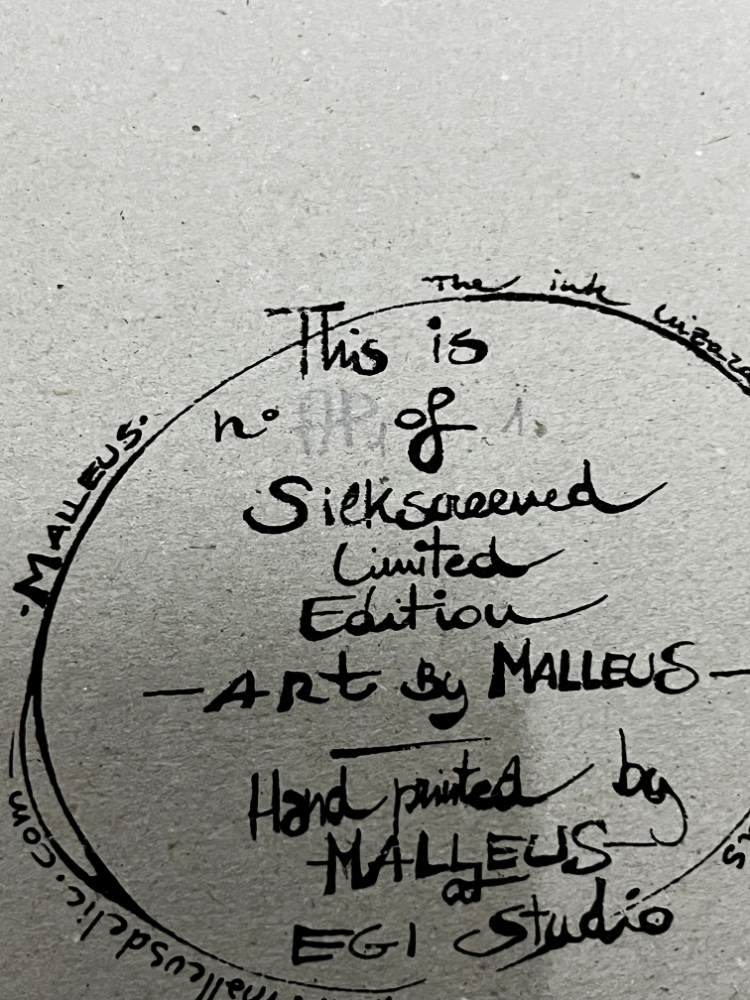 The ink wizard
This is
n° of 1
Silkscreened
Limited
Edition
—ART By MALLEUS—
Hand printed by
MALLEUS
at
EGI Studio
·MALLEUS·
malleusdelic.com